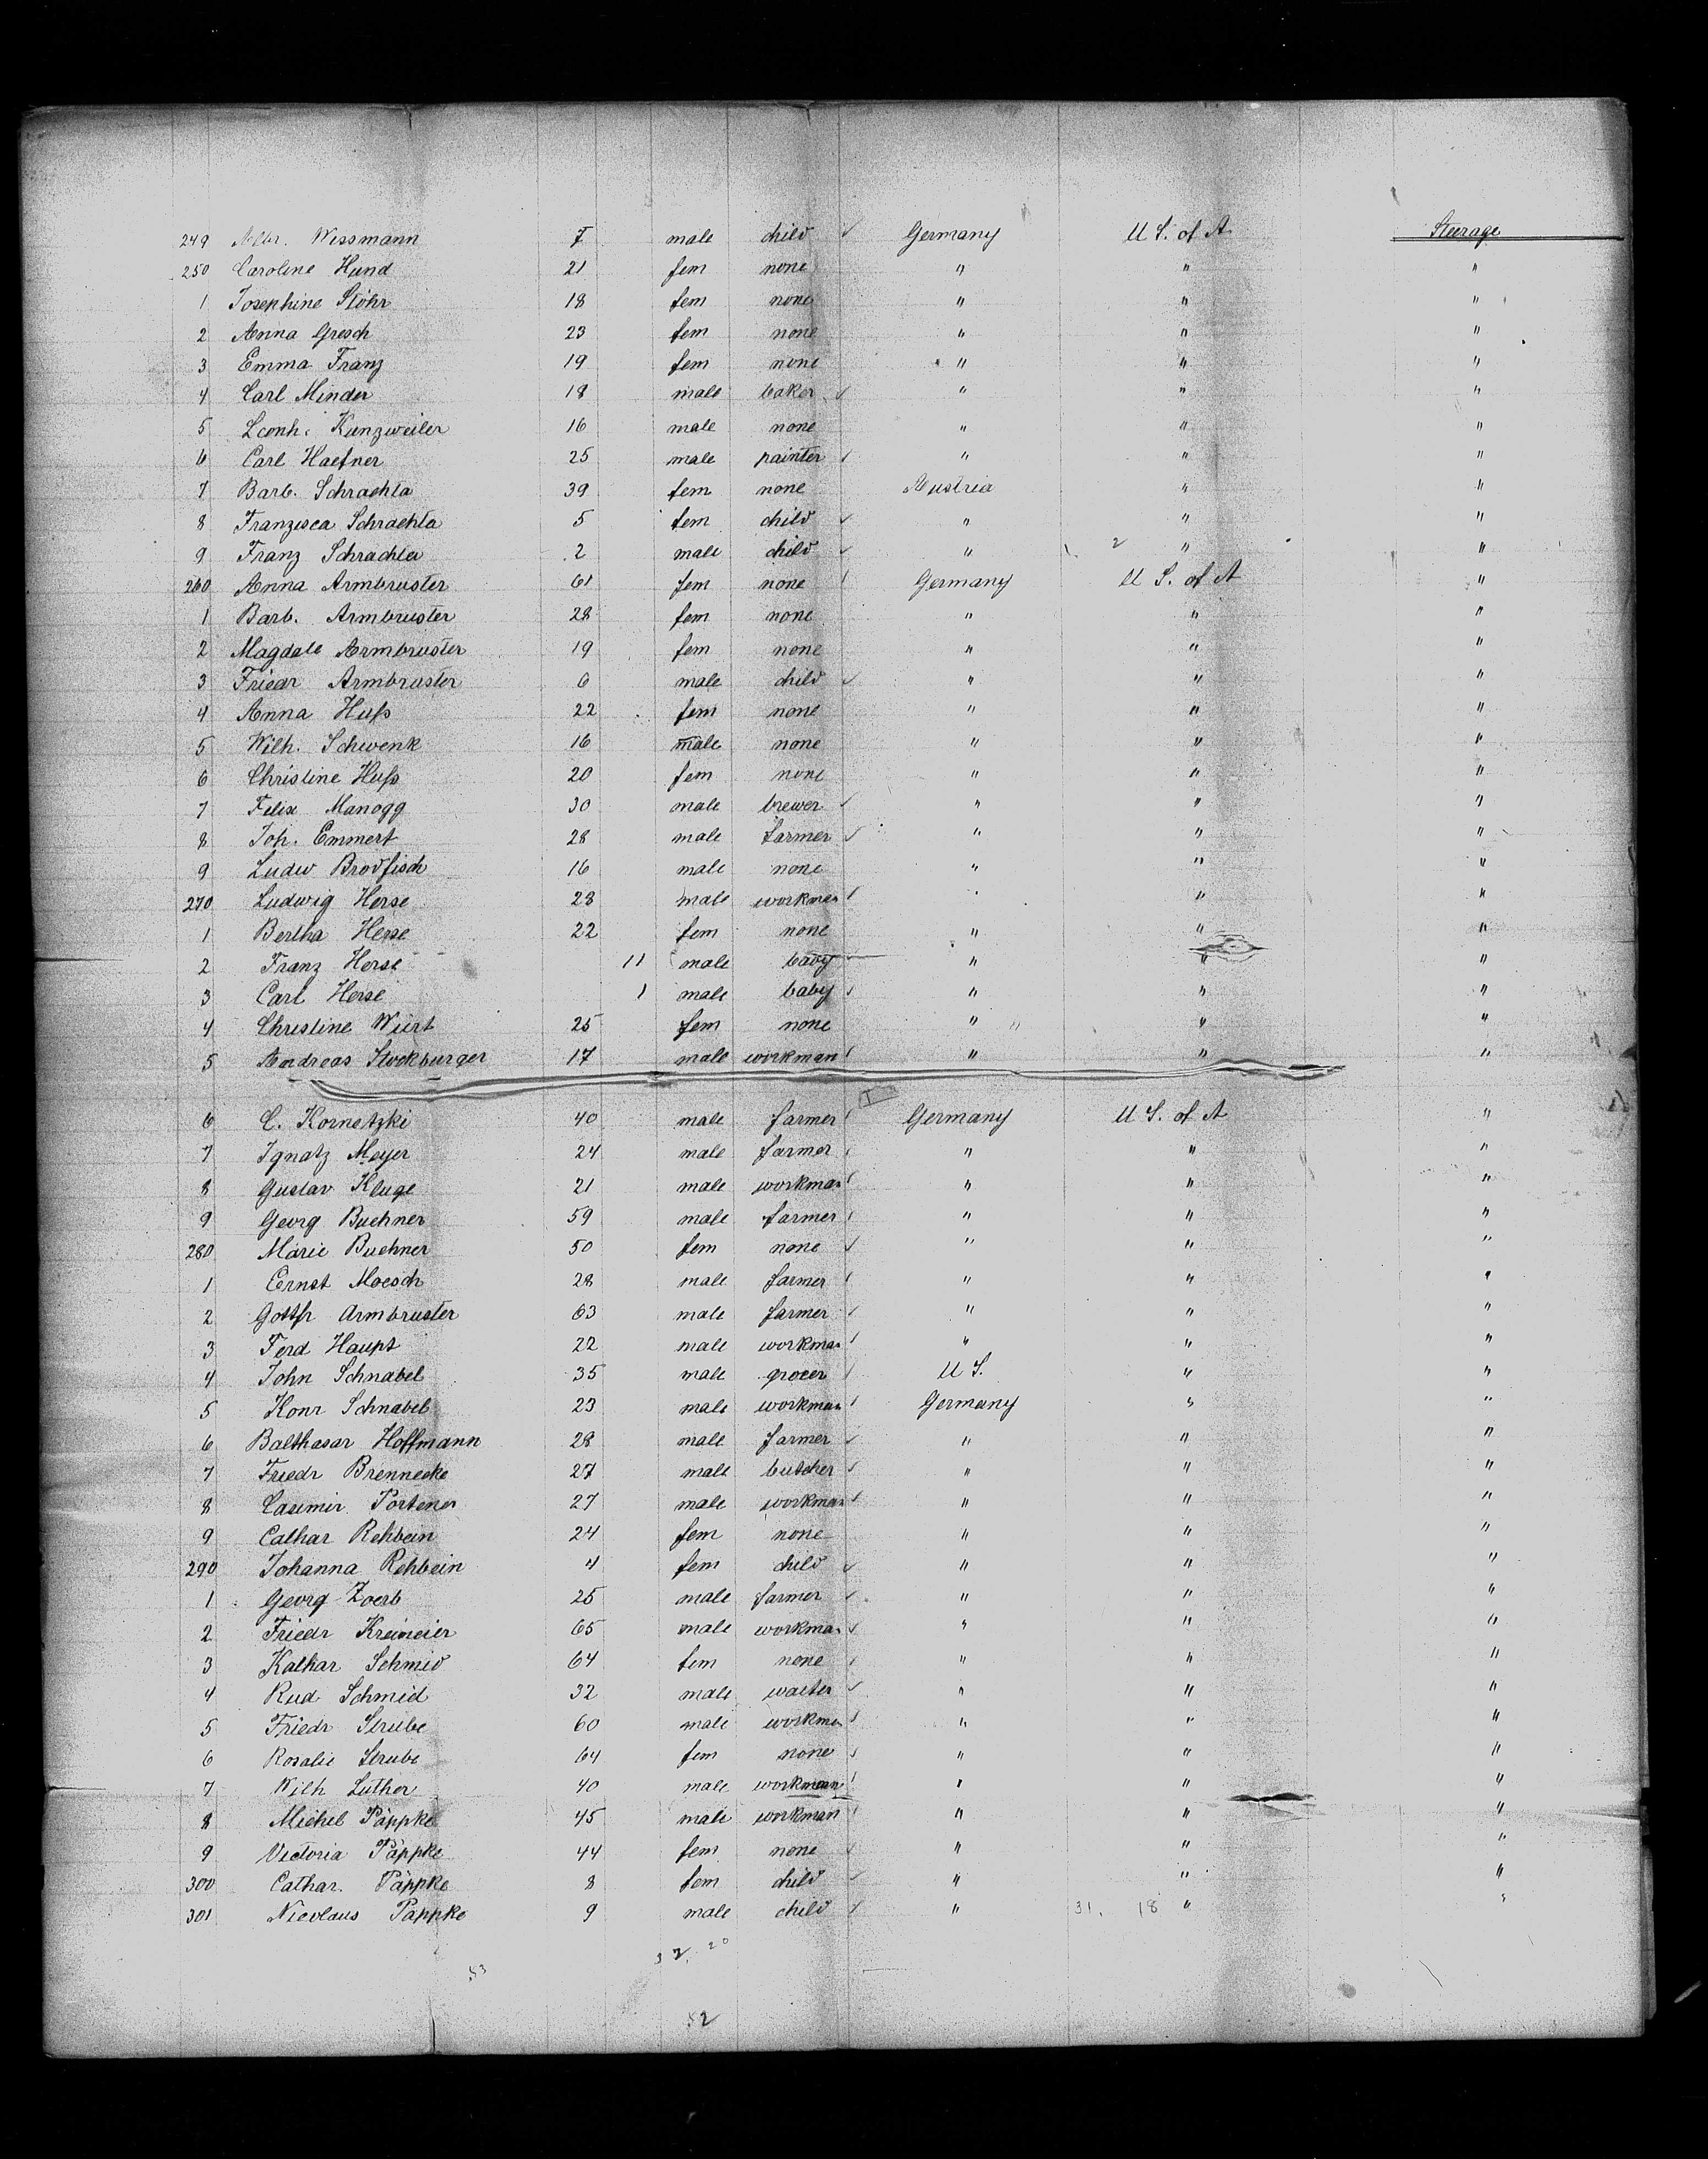 249 Albr. Wissmann 7 male child ✓ Germany U S. of A Steerage
250 Caroline Hund 21 fem none " " "
1 Josephine Stöhr 18 fem none " " "
2 Anna Gresch 23 fem none " " "
3 Emma Franz 19 fem none " " "
4 Carl Minder 18 male baker ✓ " " "
5 Leonh. Kunzweiler 16 male none " " "
6 Carl Haefner 25 male painter ✓ " " "
7 Barb. Schrachta 39 fem none Austria " "
8 Franzisca Schrachta 5 fem child ✓ " " "
9 Franz Schrachta 2 male child ✓ " 1. 2 " "
260 Anna Armbruster 61 fem none ✓ Germany U S. of A "
1 Barb. Armbruster 28 fem none " " "
2 Magdale Armbruster 19 fem none " " "
3 Friedr Armbruster 6 male child ✓ " " "
4 Anna Huſs 22 fem none " " "
5 Wilh. Schwenk 16 male none " " "
6 Christine Huſs 20 fem none " " "
7 Felix Manogg 30 male brewer ✓ " " "
8 Joh. Emmert 28 male farmer ✓ " " "
9 Ludw Brodfisch 16 male none " " "
270 Ludwig Herse 28 male workman ✓ " " "
1 Bertha Herse 22 fem none " " "
2 Franz Herse 11 male baby " " "
3 Carl Herse 1 male baby ✓ " " "
4 Christine Würt 25 fem none " " "
5 Andreas Stockburger 17 male workman ✓ " " "
6 C. Kornetzki 40 male farmer ✓ Germany U S. of A "
7 Ignatz Meyer 24 male farmer ✓ " " "
8 Gustav Kluge 21 male workman ✓ " " "
9 Georg Buehner 59 male farmer ✓ " " "
280 Marie Buehner 50 fem none ✓ " " "
1 Ernst Moesch 28 male farmer ✓ " " "
2 Gottfr Armbruster 63 male farmer ✓ " " "
3 Ferd Haupt 22 male workman ✓ " " "
4 John Schnabel 35 male grocer ✓ U S. " "
5 Konr Schnabel 23 male workman ✓ Germany " "
6 Balthasar Hoffmann 28 male farmer ✓ " " "
7 Friedr Brennecke 27 male butcher ✓ " " "
8 Casimir Portener 27 male workman ✓ " " "
9 Cathar Rehbein 24 fem none " " "
290 Johanna Rehbein 4 fem child ✓ " " "
1 Georg Zoerb 25 male farmer ✓ " " "
2 Friedr Kreimeier 65 male workman ✓ " " "
3 Kathar Schmid 64 fem none ✓ " " "
4 Rud Schmid 32 male waiter ✓ " " "
5 Friedr Strube 60 male workman ✓ " " "
6 Rosalie Strube 64 fem none ✓ " " "
7 Wilh Luther 40 male workman ✓ " " "
8 Michel Päppke 45 male workman ✓ " " "
9 Victoria Päppke 44 fem none ✓ " " "
300 Cathar. Päppke 8 fem child ✓ " " "
301 Nicolaus Päppke 9 male child ✓ " 31. 18 " "
32. 20
53
52